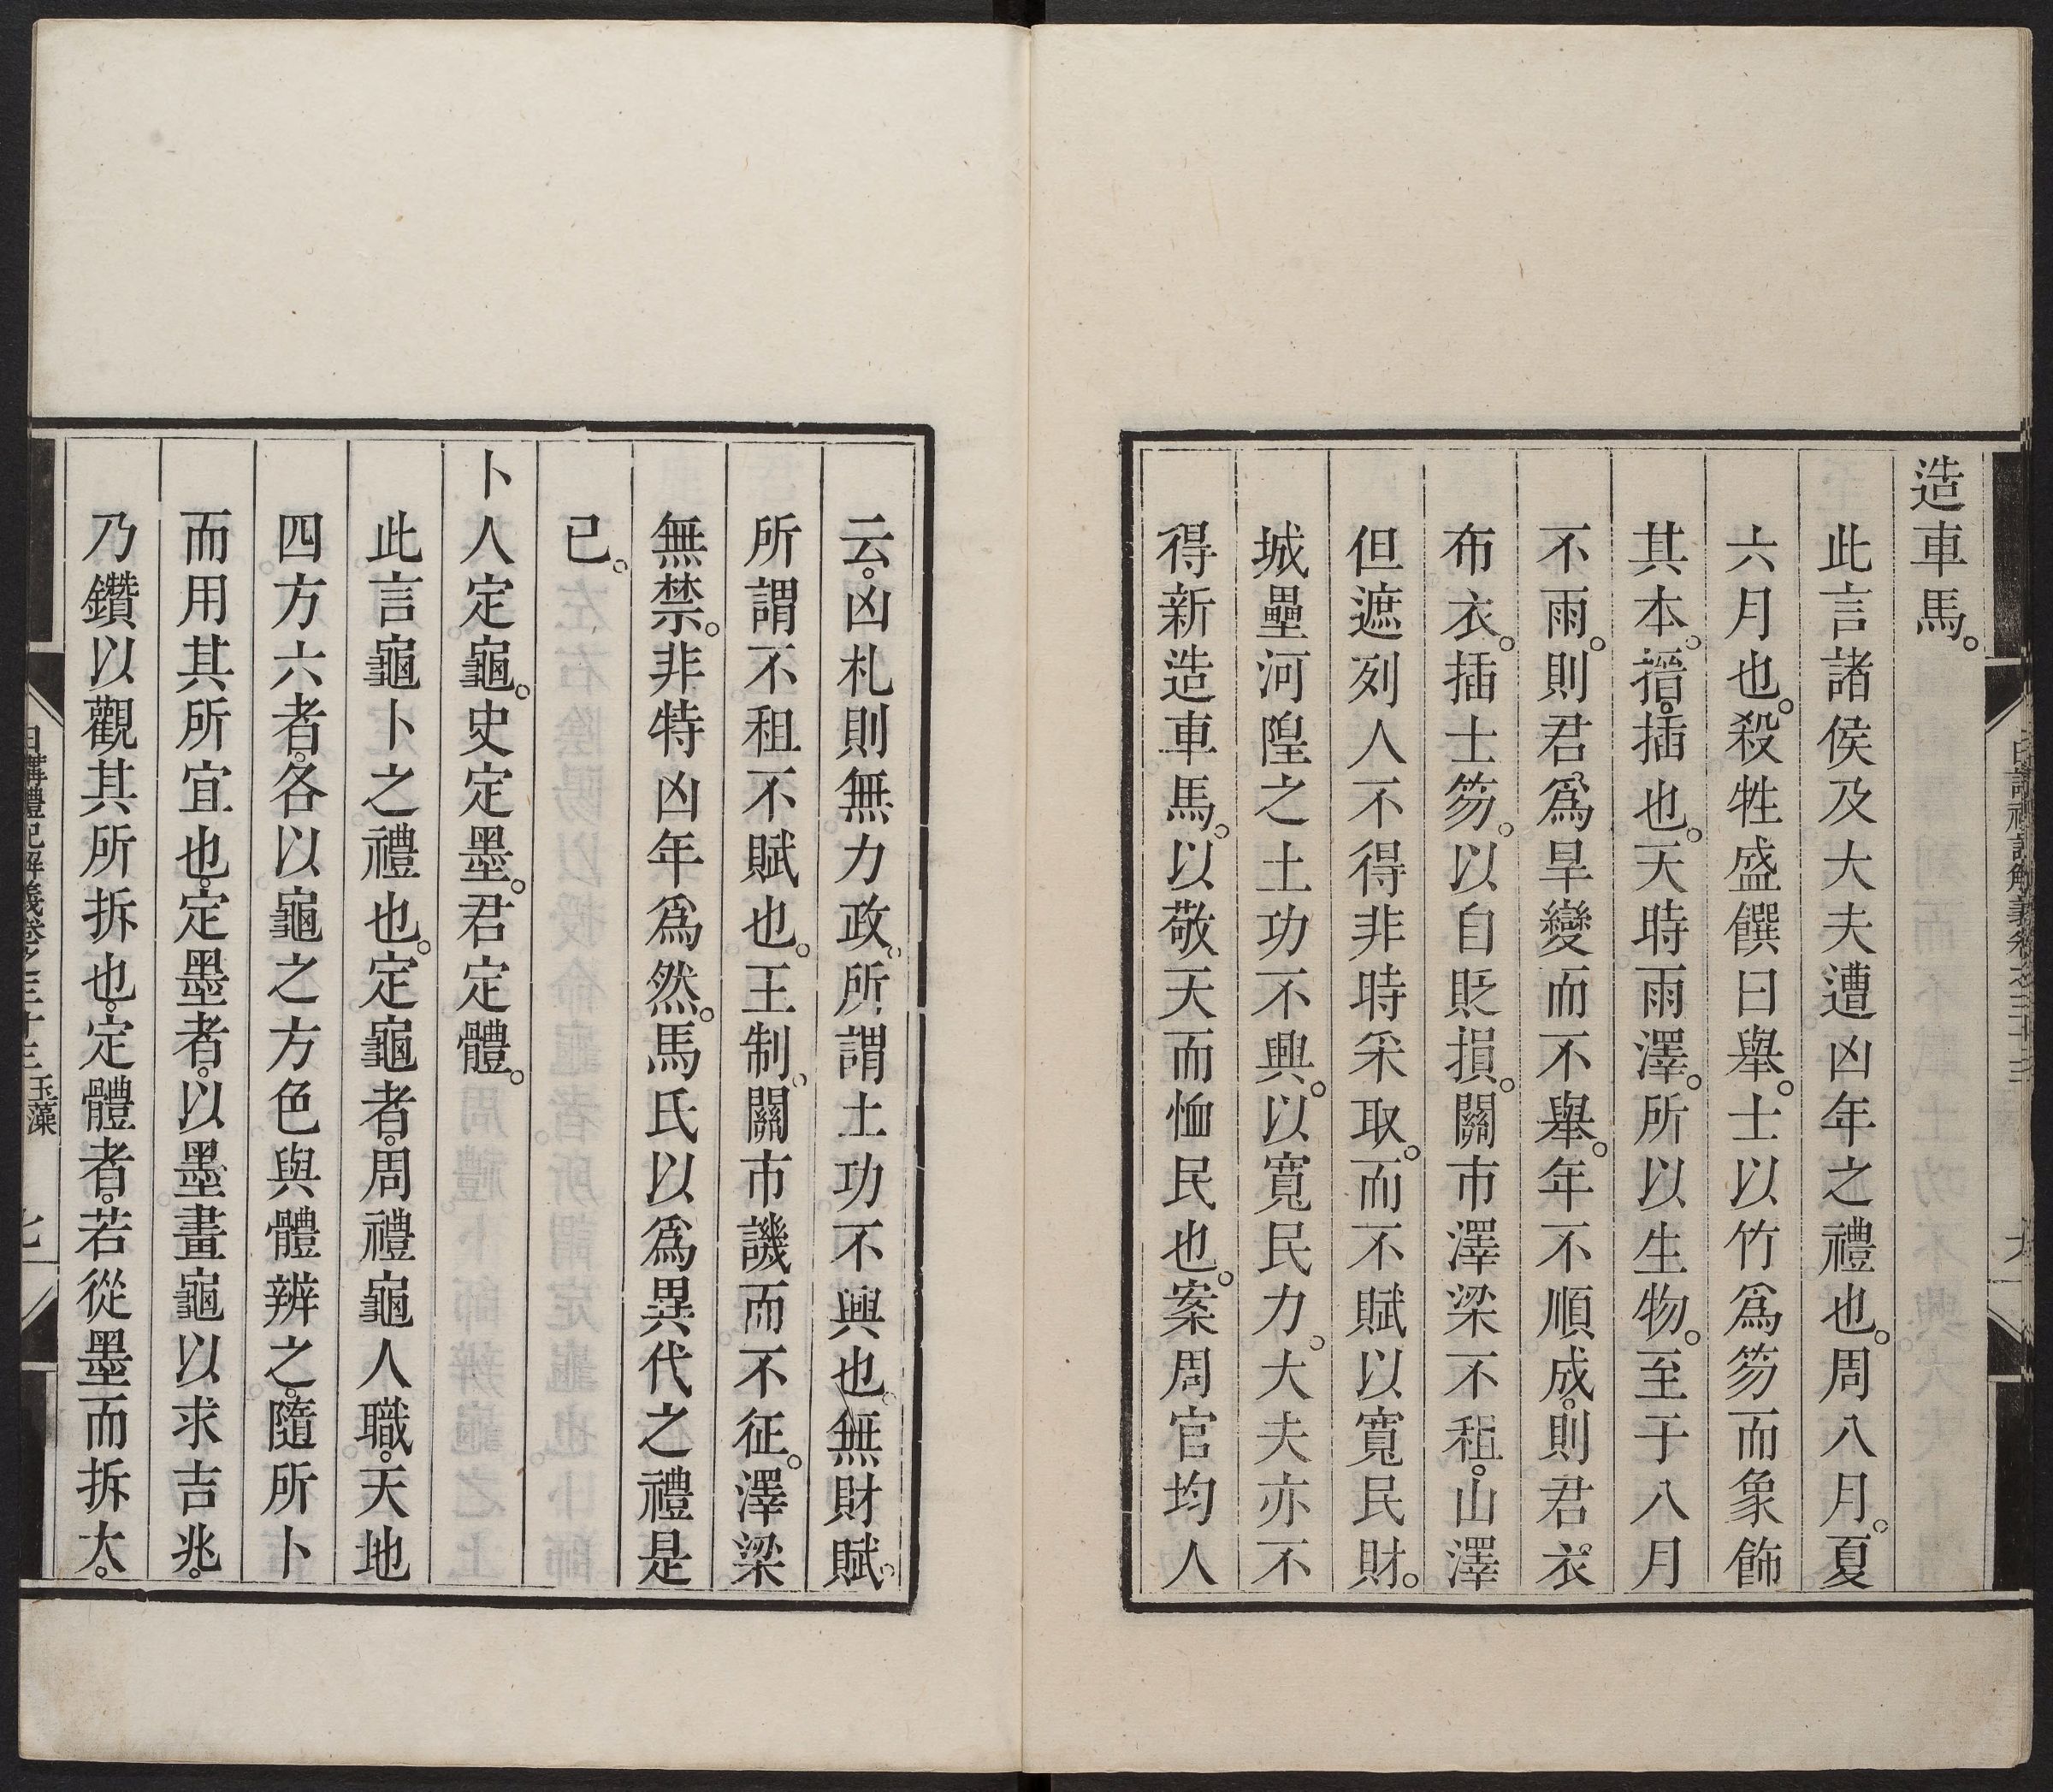 造車馬。
此言諸侯及大夫遭凶年之禮也。周八月。夏
六月也。殺牲盛饌曰舉。士以竹爲笏而象飾
其本。搢。插也。天時雨澤。所以生物。至于八月
不雨。則君爲旱變而不舉。年不順成。則君衣
布衣。插士笏。以自貶損。關市澤梁不租。山澤
但遮列人不得非時采取。而不賦以寬民財。
城壘河隍之土功不興。以寬民力。大夫亦不
得新造車馬。以敬天而恤民也。案周官均人
云。凶札則無力政。所謂土功不興也。無財賦。
所謂不租不賦也。王制。關市譏而不征。澤梁
無禁。非特凶年爲然。馬氏以爲異代之禮是
已。
卜人定龜。史定墨。君定體。
此言龜卜之禮也。定龜者。周禮龜人職。天地
四方六者。各以龜之方色與體辨之。隨所卜
而用其所宜也。定墨者。以墨畫龜以求吉兆。
乃鑽以觀其所拆也。定體者。若從墨而拆大。
日講禮記解義卷之三十三 玉藻 七